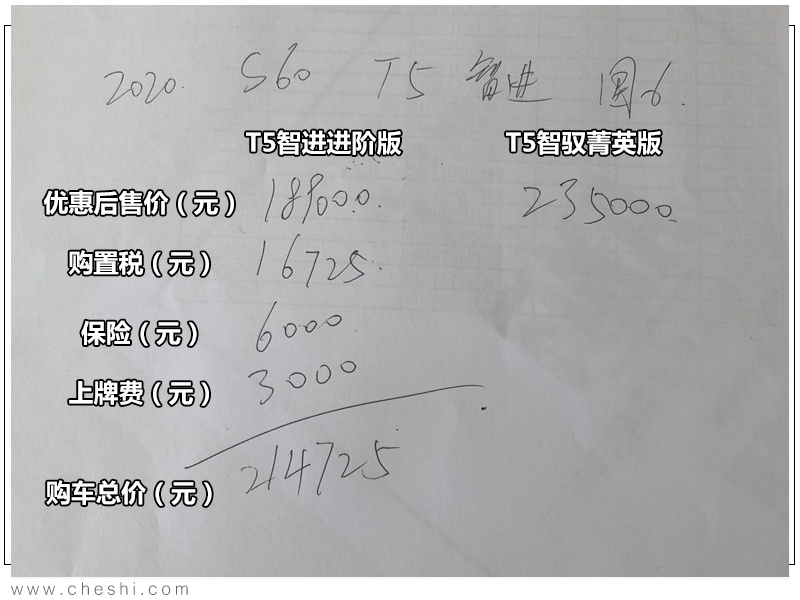 2020. S60 T5 智进 国6.
T5智进进阶版 T5智驭菁英版
优惠后售价（元） 189000. 235000.
购置税（元） 16725.
保险（元） 6000
上牌费（元） 3000
购车总价（元） 214725
www.cheshi.com